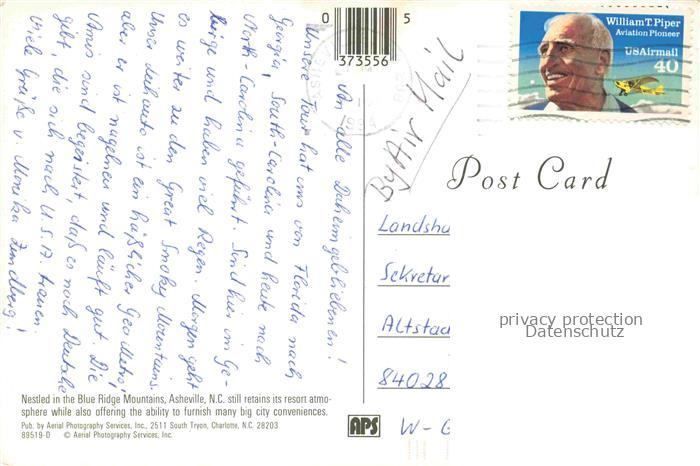 An alle Daheimgebliebenen!
Unsere Tour hat uns von Florida nach
Georgia, South-Carolina und heute nach
North-Carolina geführt. Sind hier im Ge-
birge und haben viel Regen. Morgen geht
es weiter zu den Great Smoky Mountains.
Unser Leihauto ist ein häßlicher Geo Metro,
aber er ist nagelneu und läuft gut. Die
Amis sind begeistert, daß es noch Deutsche
gibt, die sich nach U.S.A. trauen.
Viele Grüße v. Monika
Nestled in the Blue Ridge Mountains, Asheville, N.C. still retains its resort atmo-
sphere while also offering the ability to furnish many big city conveniences.
Pub. by Aerial Photography Services, Inc., 2511 South Tryon, Charlotte, N.C. 28203
89519-D © Aerial Photography Services, Inc.
0 5
373556
1994
By Air Mail
William T. Piper
Aviation Pioneer
USAirmail
40
Post Card
Landshu
Sekretar
Altstad
84028
W-G
APS
privacy protection
Datenschutz